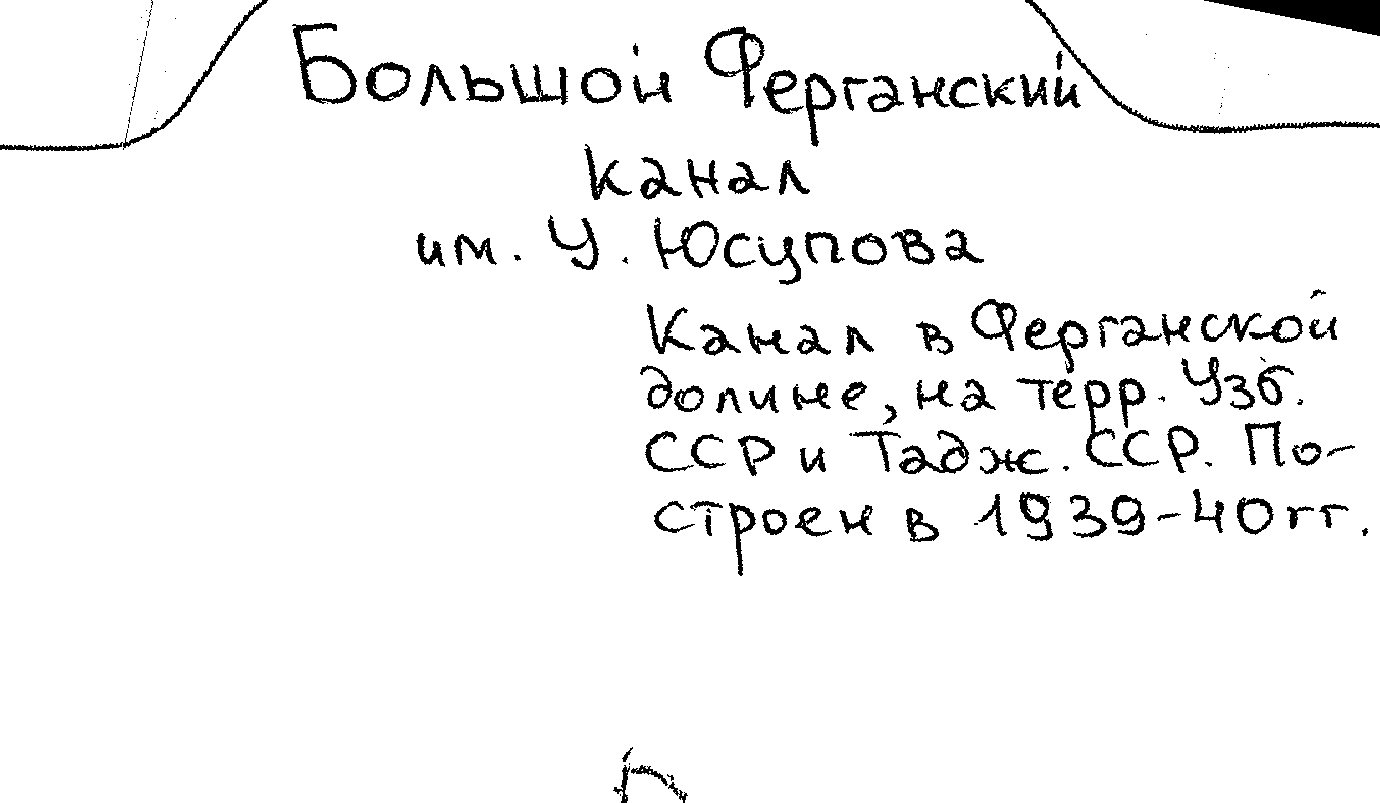 Большой Ферганский
канал
им. У. Юсупова
Канал в Ферганской
долине, на терр. Узб.
ССР и Тадж. ССР. По-
строен в 1939-40гг.